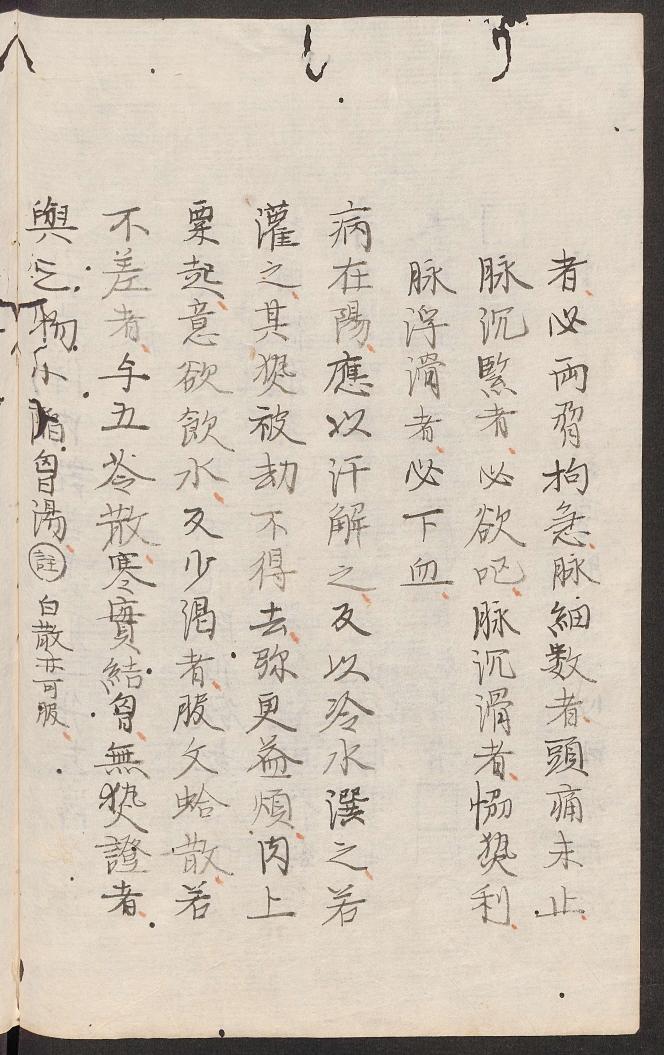 者必両脅拘急脉細数者頭痛未止
脉沉緊者必欲吐脉沉滑者恊𤍠利
脉浮滑者必下血
病在陽應以汗解之反以冷水潠之若
灌之其𤍠被劫不得去弥更益煩肉上
粟起意欲飲水反少渇者服文蛤散若
不差者与五苓散寒實結胷無𤍠證者
與三物小陷胷湯 註 白散亦可服